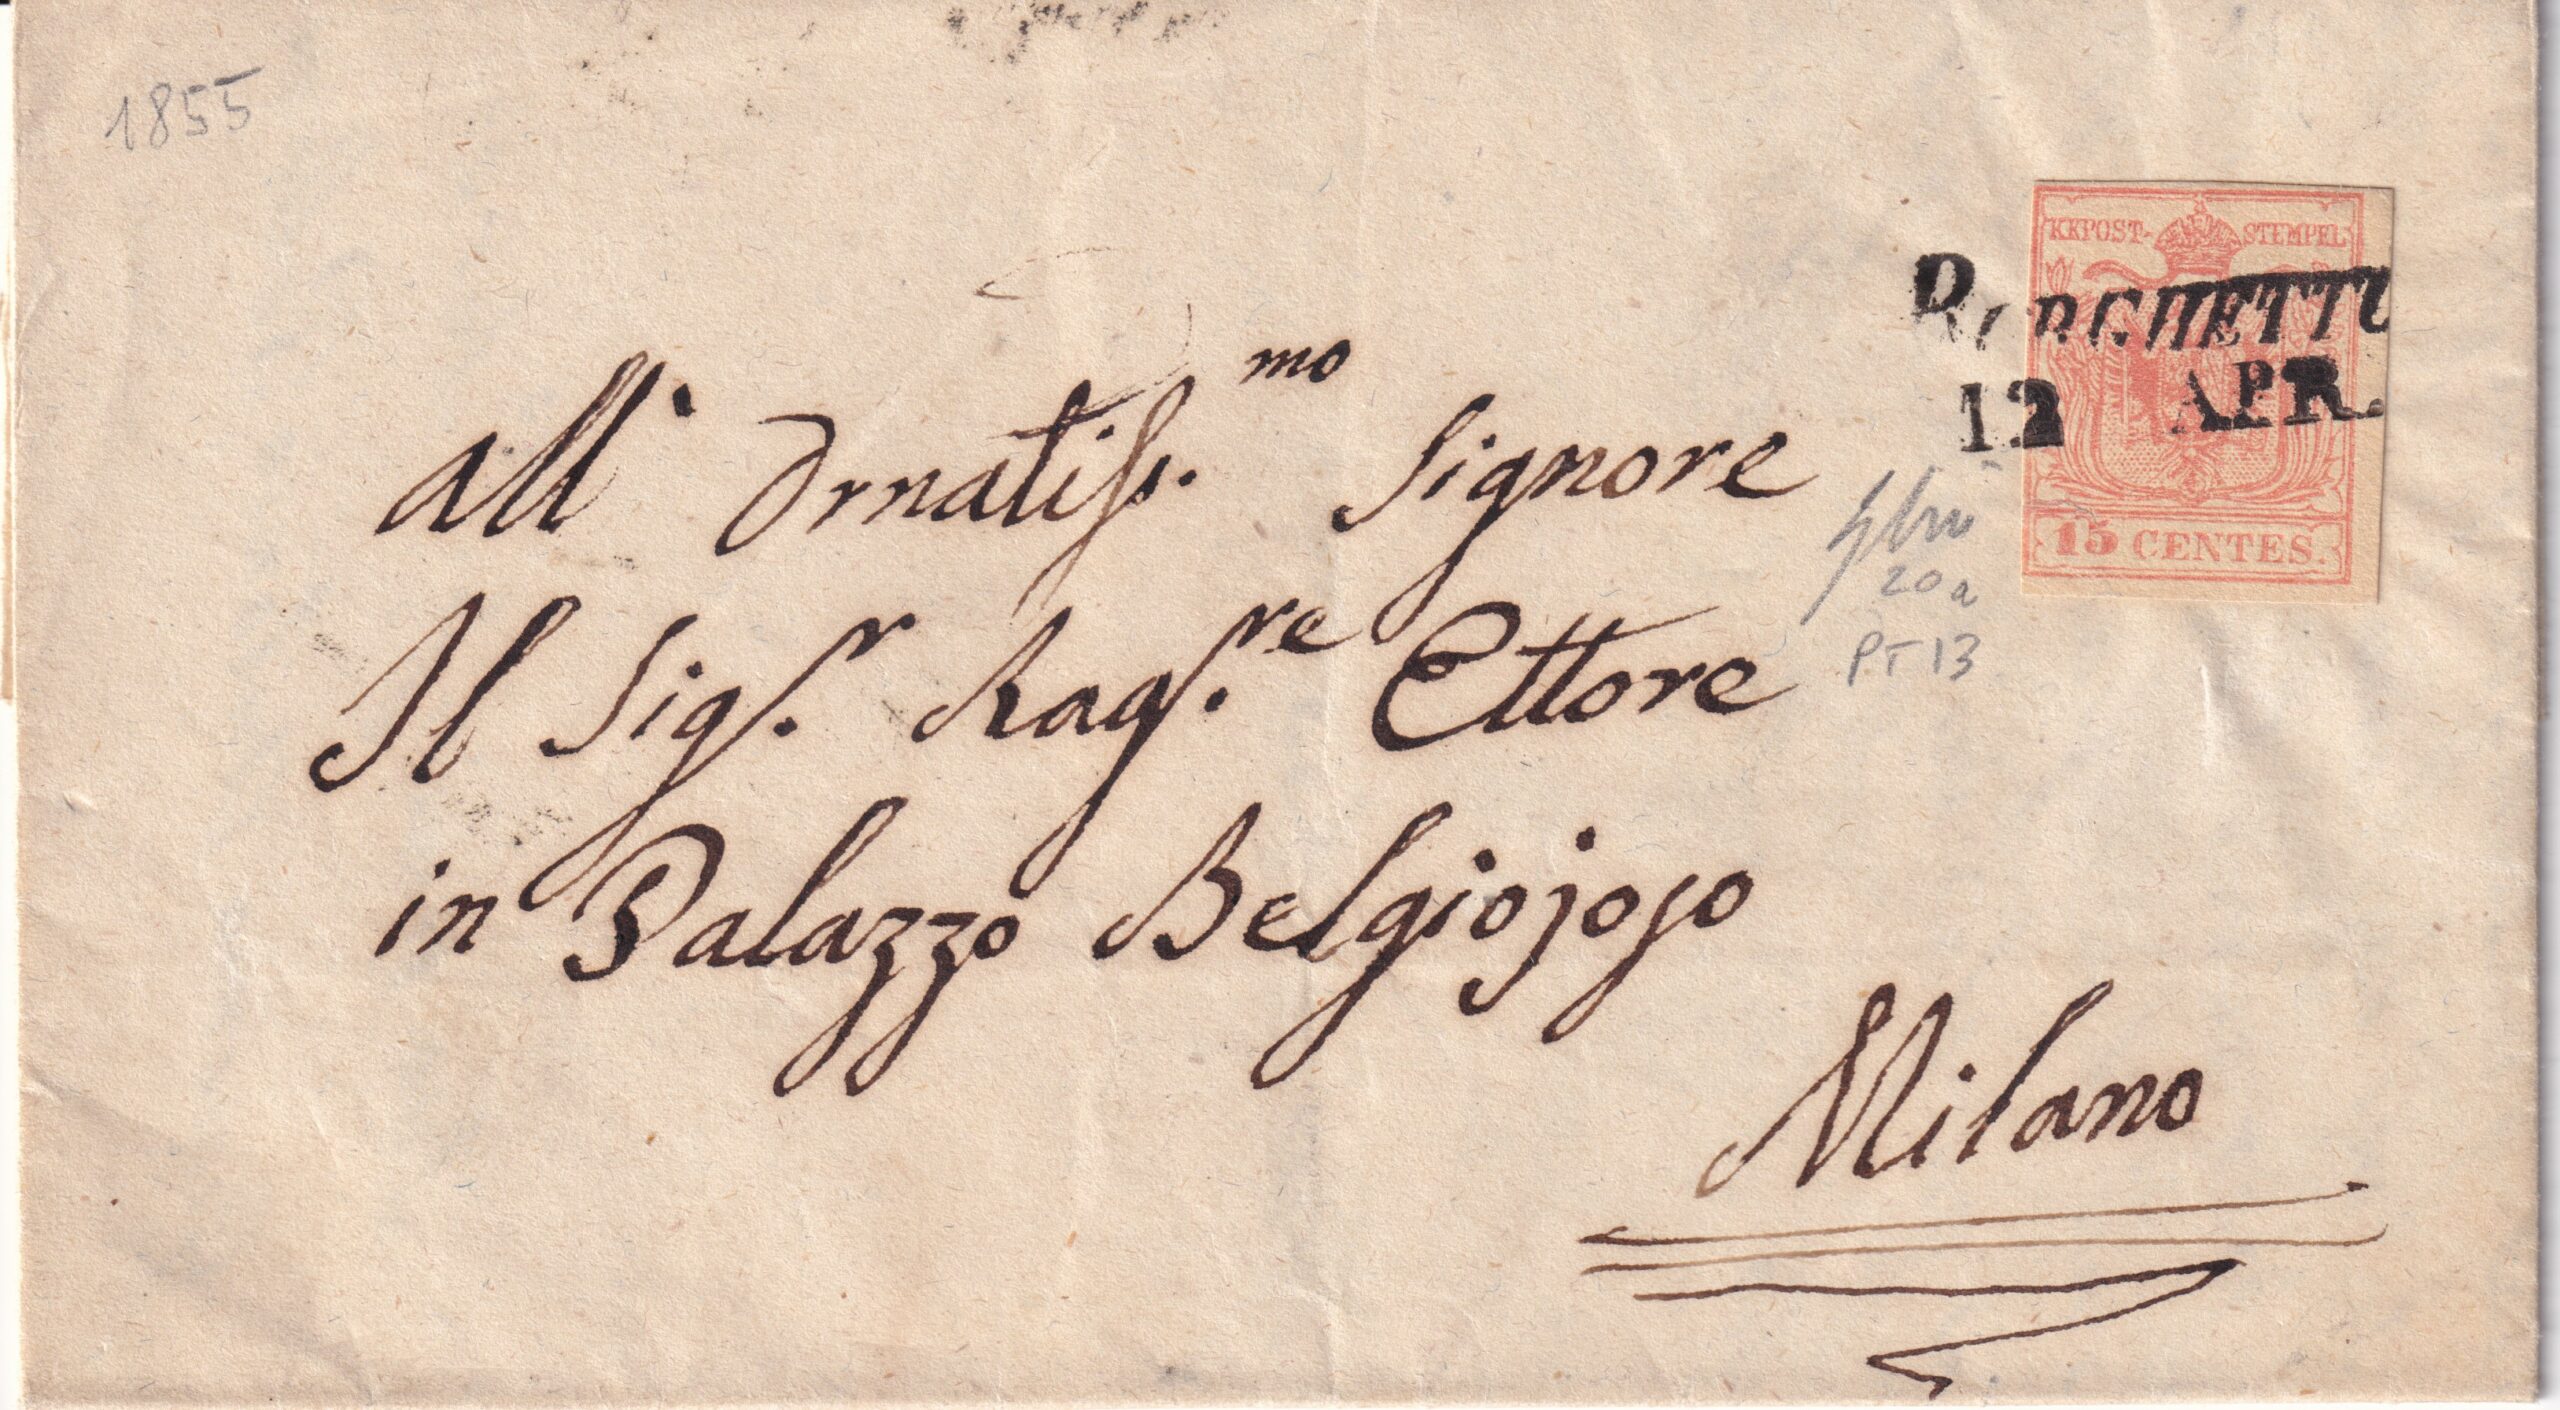 1855
KKPOST-STEMPEL
BORGHETTO
12 APR.
15 CENTES.
20a
PT 13
all' Ornatiss.mo Signore
Il Sig.r Rag.re Ettore
in Palazzo Belgiojoso
Milano